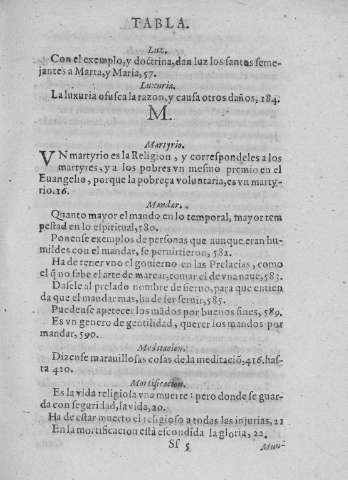 TABLA.
Luz.
Con el exemplo, y doctrina, dan luz los santos seme-
jantes a Marta, y Maria, 57.
Luxuria.
La luxuria ofusca la razon, y causa otros daños, 184.
M.
Martyrio.
VN martyrio es la Religion, y correspondeles a los
martyres, y a los pobres vn mesmo premio en el
Euangelio, porque la pobreça voluntaria, es vn marty-
rio. 16.
Mandar.
Quanto mayor el mando en lo temporal, mayor tem
pestad en lo espiritual, 580.
Ponense exemplos de personas que aunque eran hu-
mildes con el mandar, se peruirtieron, 582.
Ha de tener vno el gouierno en las Prelacias, como
el q̃ no sabe el arte de marear, tomar el de vna naue, 583.
Dasele al prelado nombre de sieruo, para que entien
da que el mandar mas, ha de ser seruir, 585.
Puedense apetecer los mãdos por buenos fines, 589.
Es vn genero de gentilidad, querer los mandos por
mandar, 590.
Meditacion.
Dizense marauillosas cosas de la meditaciõ, 416. has-
ta 420.
Mortificacion.
Es la vida religiosa vna muerte: pero donde se guar-
da con seguridad, la vida, 20.
Ha de estar muerto el religioso a todas las injurias, 21
En la mortificacion està escondida la gloria, 22.
Sf 5
Mun-